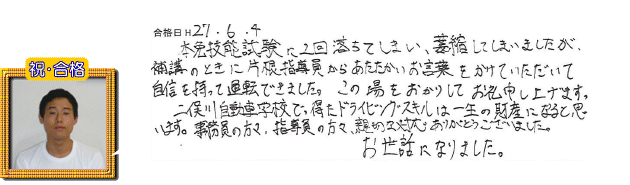 祝・合格
合格日 H27.6.4
本免技能試験に2回落ちてしまい、萎縮してしまいましたが、
補講のときに片根指導員からあたたかいお言葉をかけていただいて
自信を持って運転できました。この場をおかりしてお礼申し上げます。
二俣川自動車学校で、得たドライビングスキルは一生の財産になると思
います。事務員の方々、指導員の方々、親切な対応ありがとうございました。
お世話になりました。